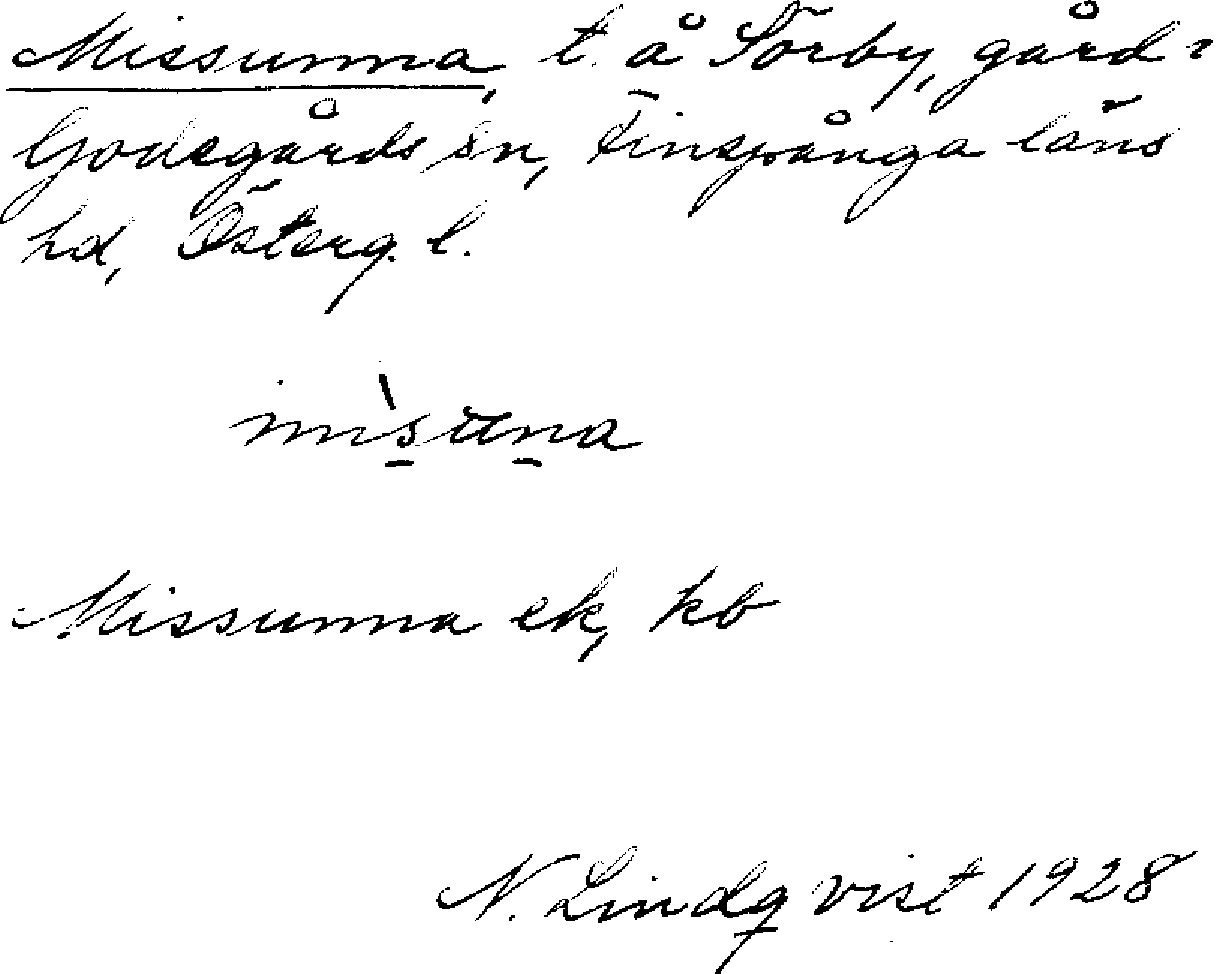 Missunna, t. å Sörby, gård i
Godegårds sn, Finspånga läns
hd, Österg. l.
mìsuna
Missunna ek, kb
N. Lindqvist 1928